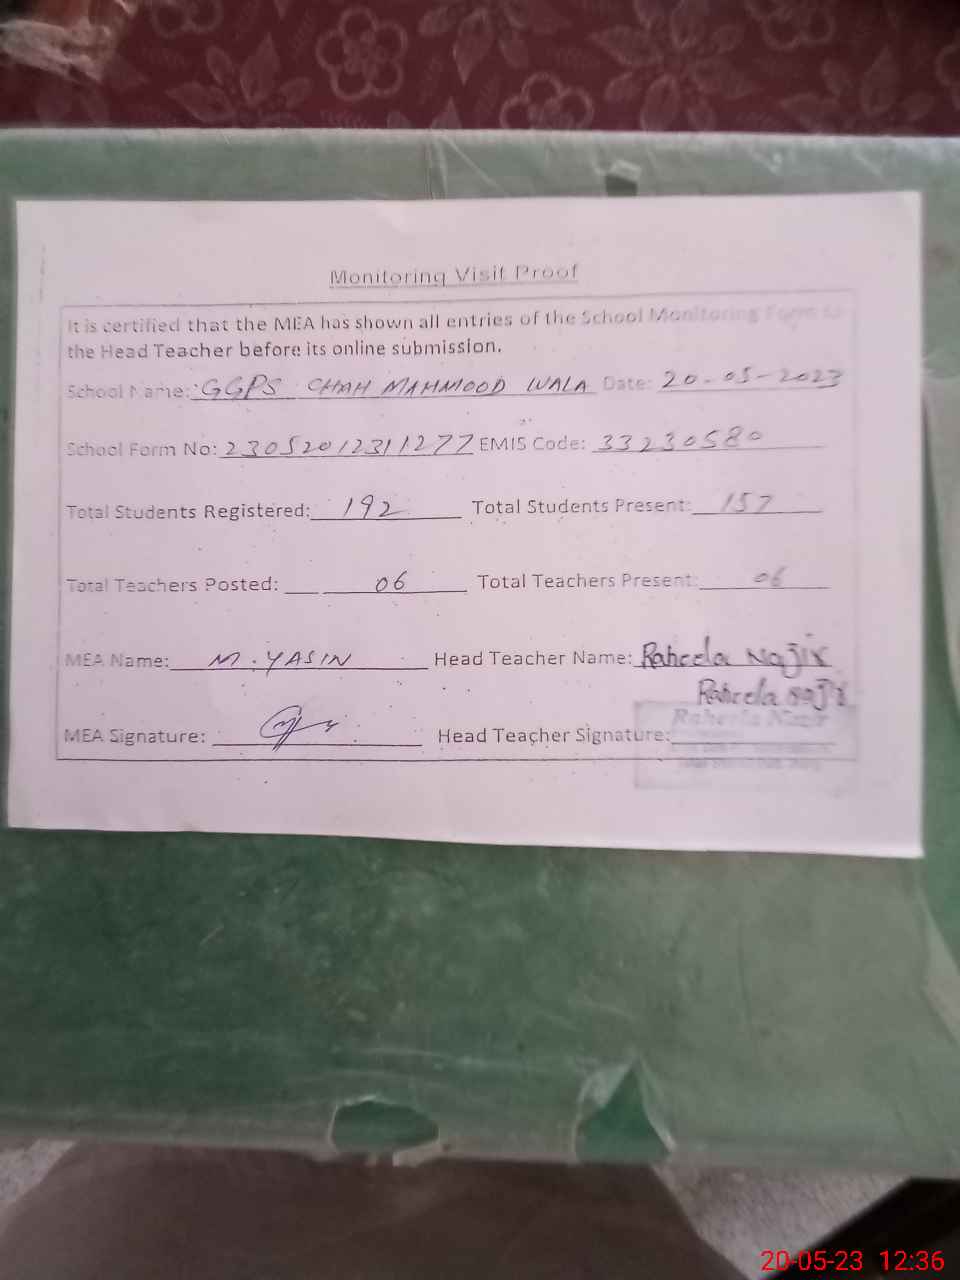 Monitoring Visit Proof
It is certified that the MEA has shown all entries of the School Monitoring Form to
the Head Teacher before its online submission.
School Name: GGPS CHAH MAHMOOD WALA Date: 20-05-2023
School Form No: 23052012311277 EMIS Code: 33230580
Total Students Registered: 192 Total Students Present: 157
Total Teachers Posted: 06 Total Teachers Present: 06
MEA Name: M.YASIN Head Teacher Name: Raheela Nazir
Raheela Nazir
Raheela Nazir
MEA Signature: Head Teacher Signature:
20-05-23 12:36